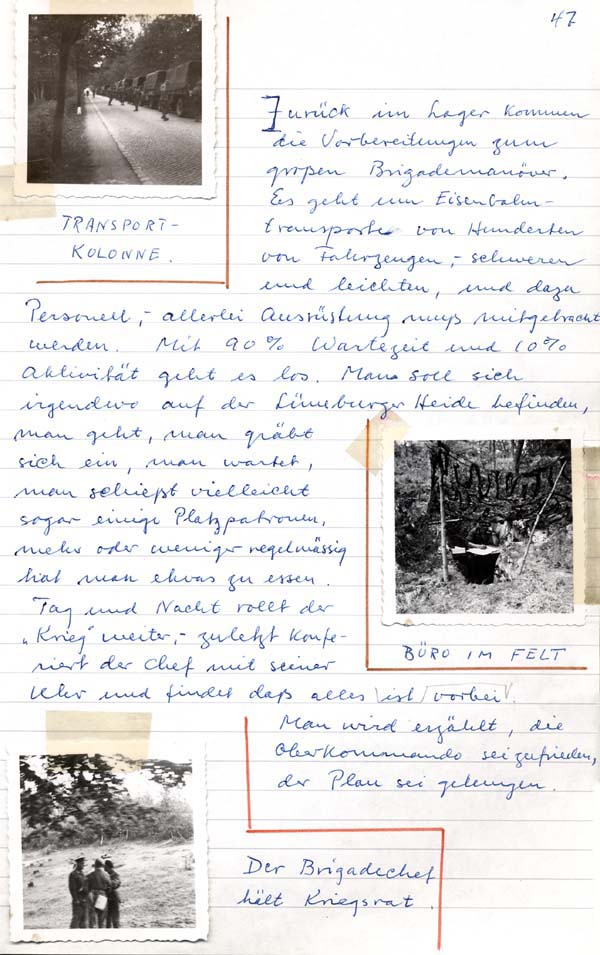 47
TRANSPORT-
KOLONNE.
Zurück im Lager kommen
die Vorbereitungen zum
großen Brigademanöver.
Es geht um Eisenbahn-
transporte von Hunderten
von Fahrzeugen,- schweren
und leichten, und dazu
Personell,- allerlei Ausrüstung muß mitgebracht
werden. Mit 90% Wartezeit und 10%
Aktivität geht es los. Man soll sich
irgendwo auf der Lüneburger Heide befinden,
man geht, man gräbt
sich ein, man wartet,
man schießt vielleicht
sogar einige Platzpatronen,
mehr oder weniger regelmässig
hat man etwas zu essen.
Tag und Nacht rollt der
„Krieg" weiter,- zuletzt konfe-
riert der Chef mit seiner
Uhr und findet daß alles ist vorbei.
BÜRO IM FELT
Man wird erzählt, die
Oberkommando sei zufrieden,
der Plan sei gelungen.
Der Brigadechef
hält Kriegsrat.